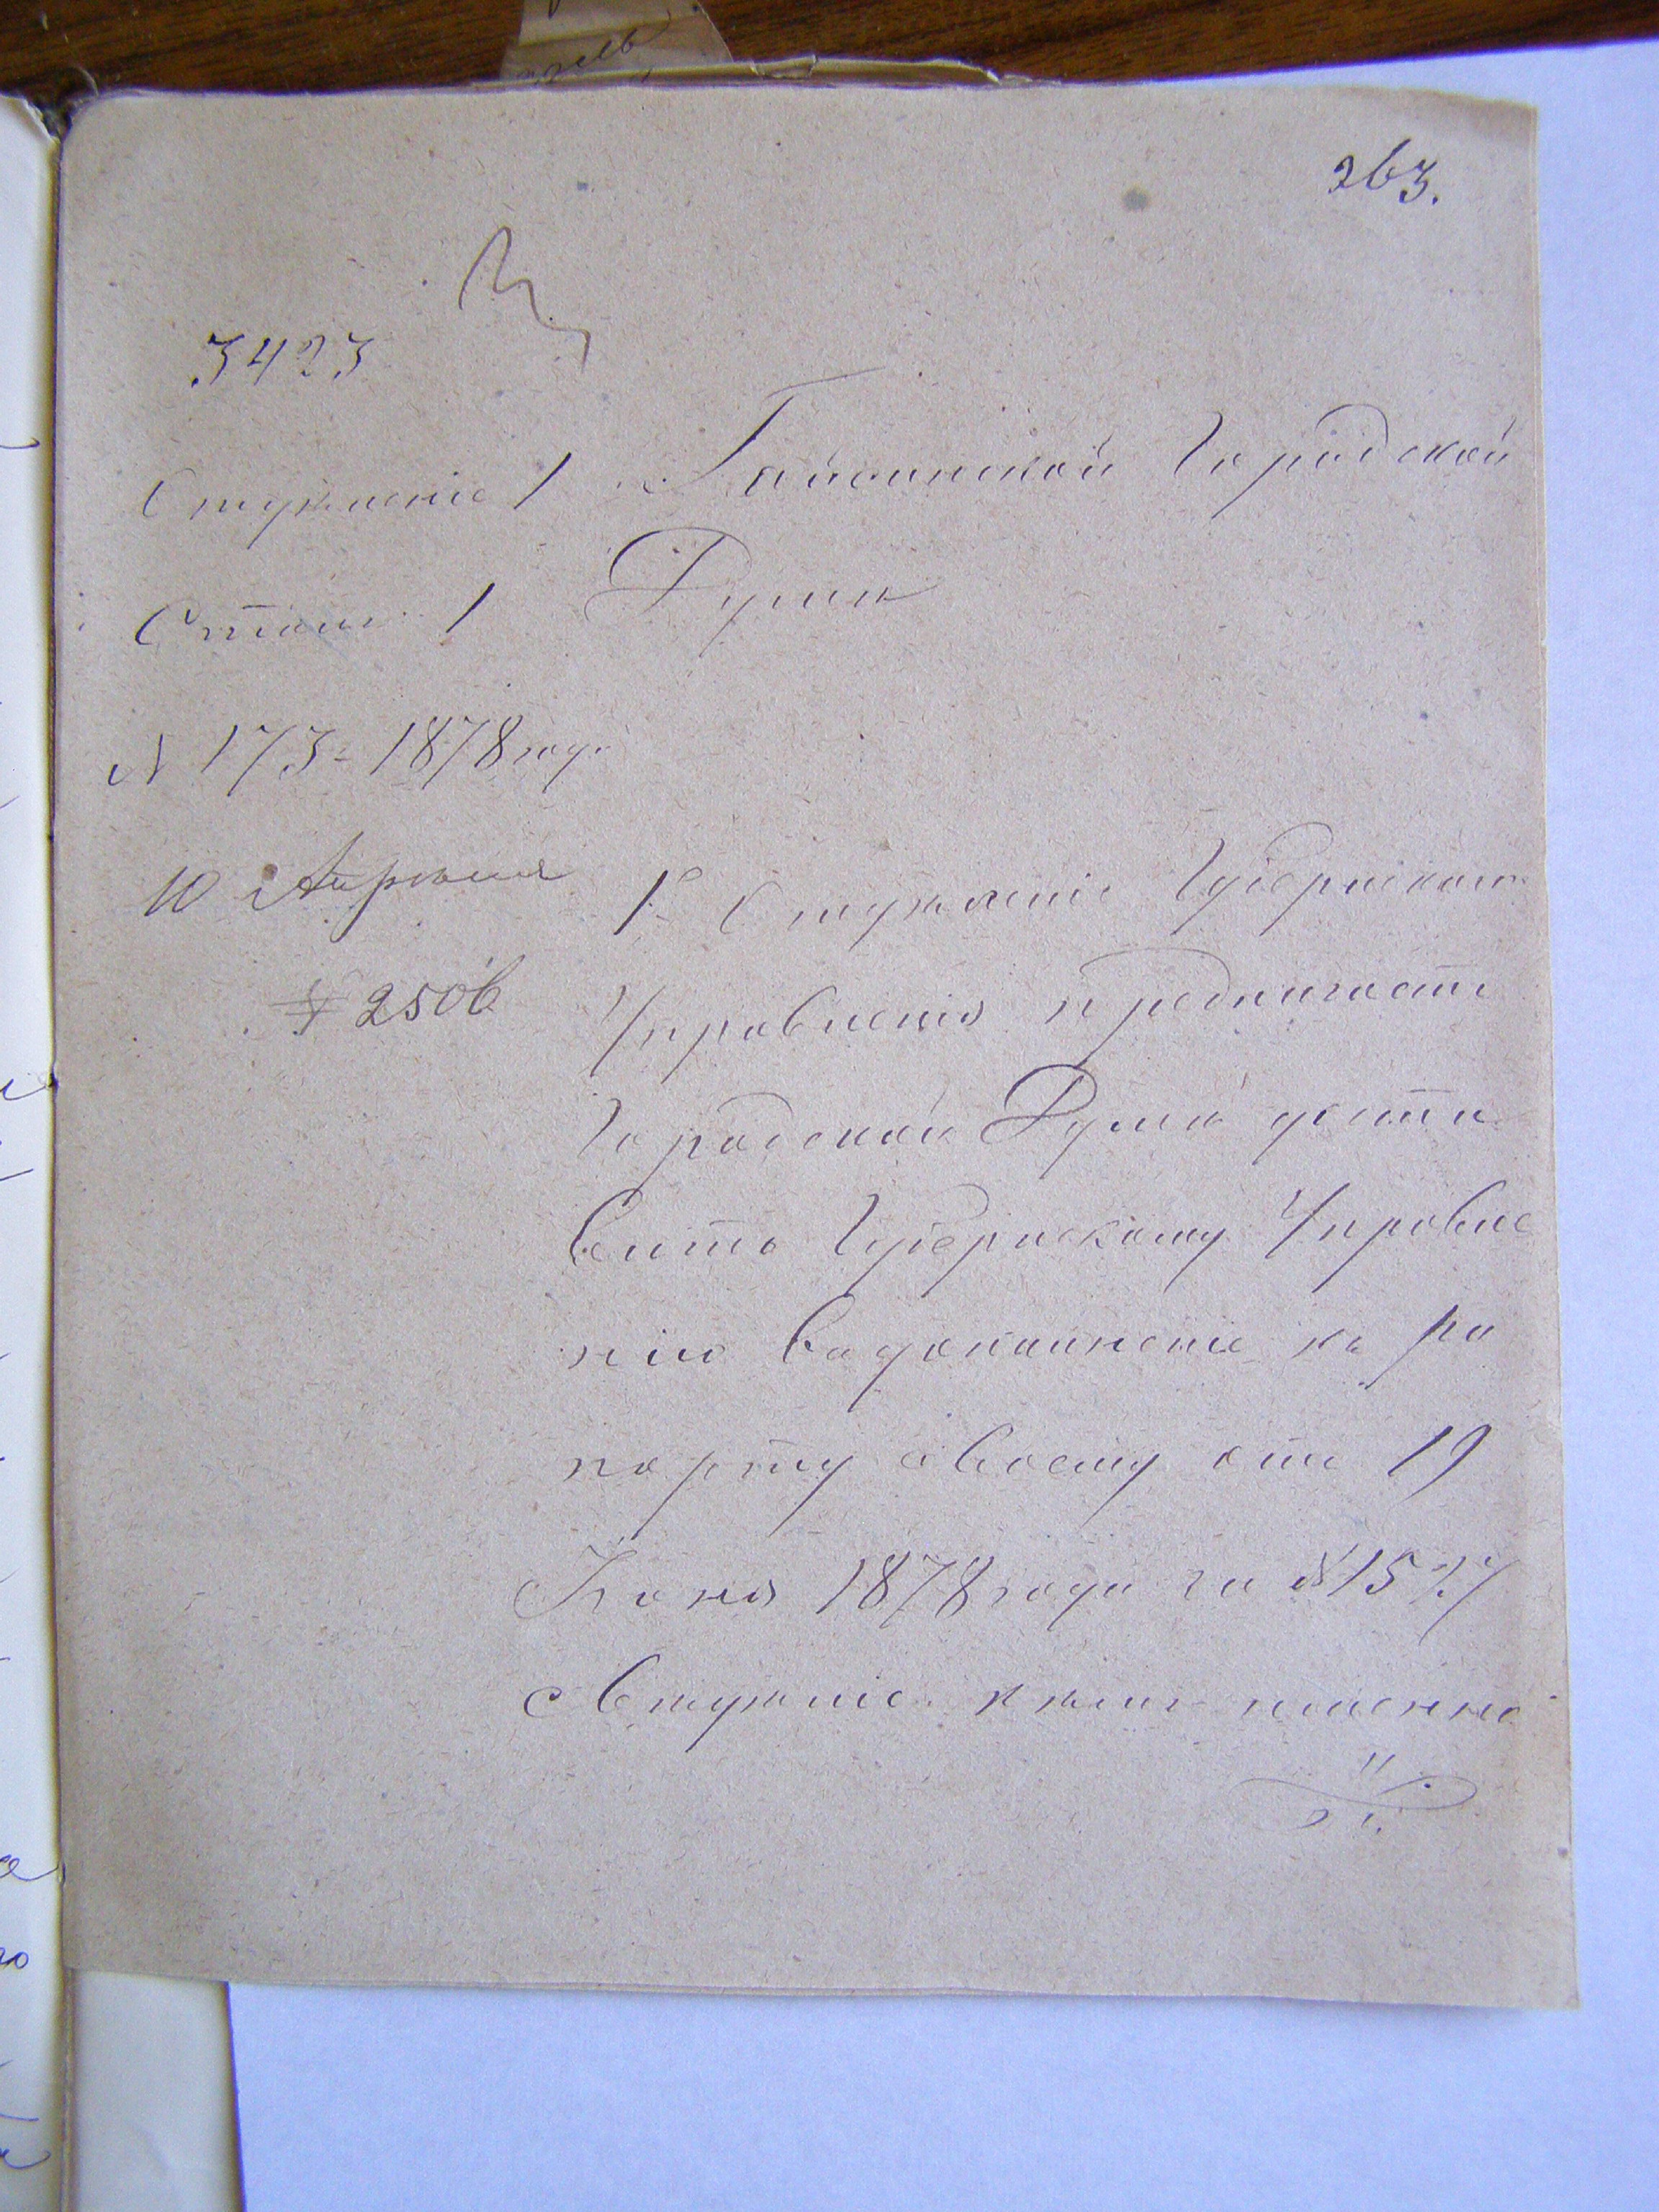 263.
3423
Отдѣленіе 1
Столъ 1
N 173 - 1878 года
10 Апрѣля
№ 2506
Гайсинской Городской
Думѣ
1е Отдѣленіе Губернскаго
Управленія предлагаетъ
Городской Думѣ доста
вить Губернскому Управле
нію въ дополненіе къ ра
порту своему отъ 19
1878 года за №1527
свѣдѣніе